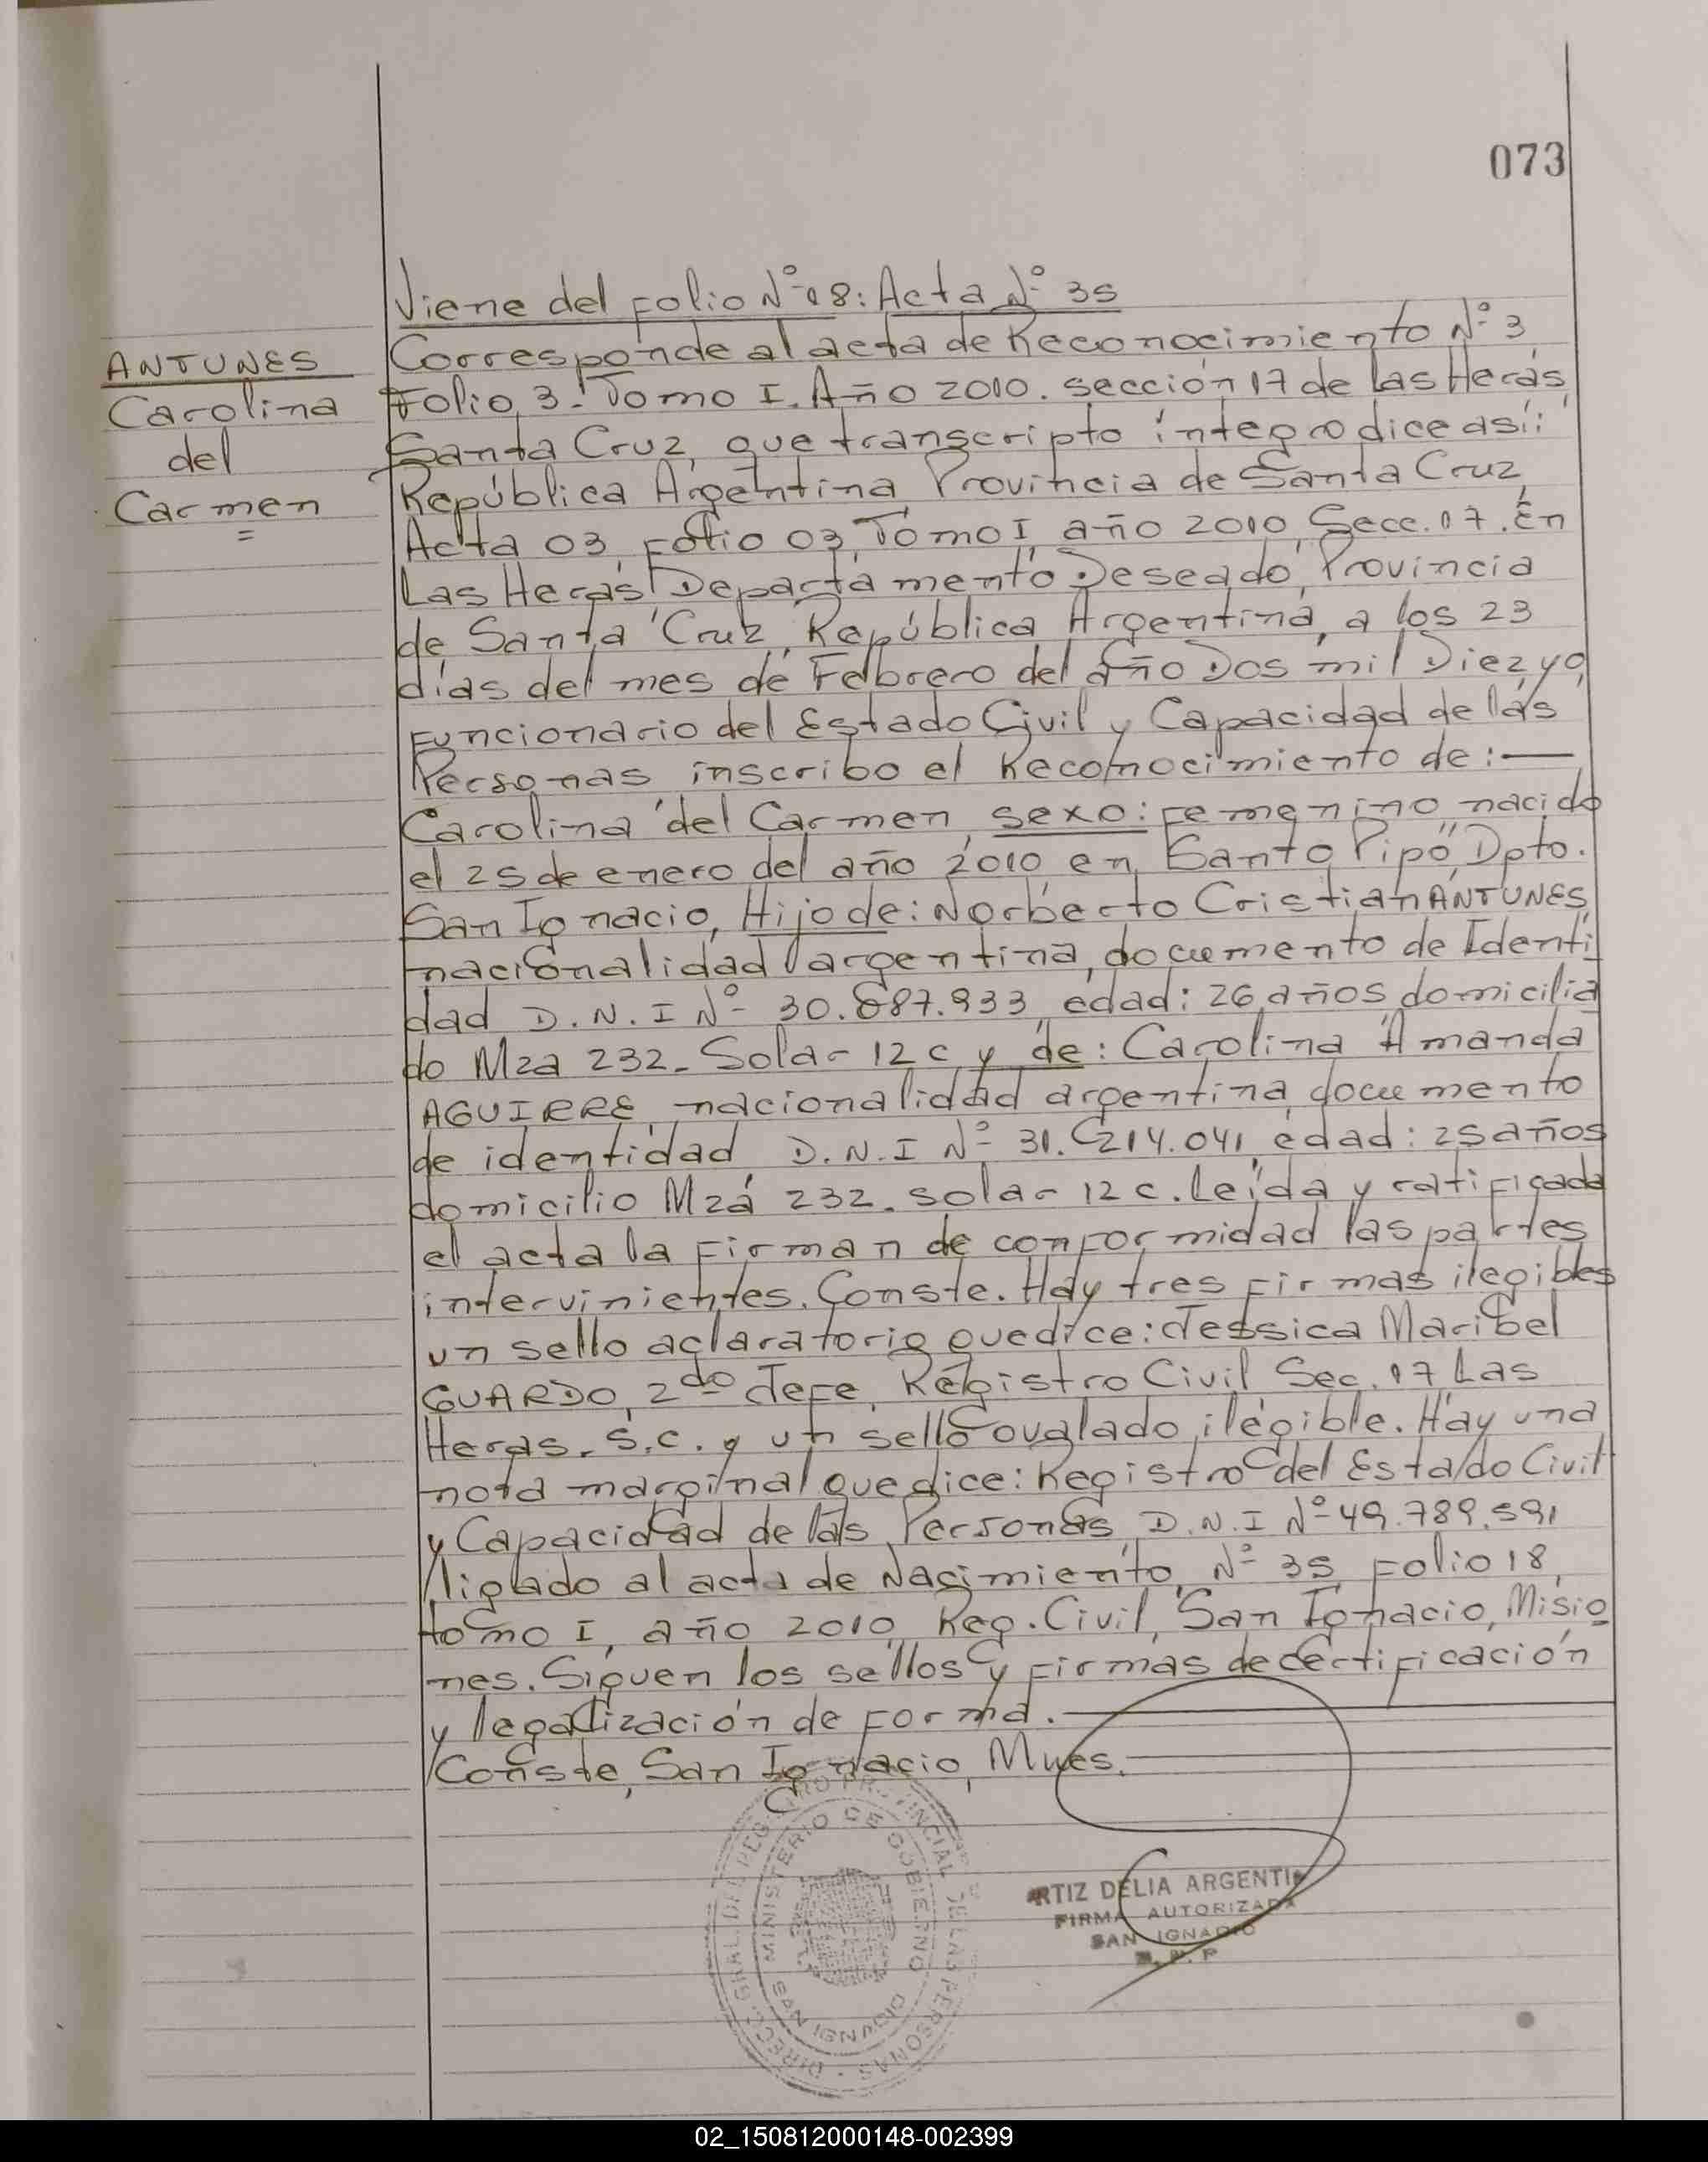 073
Viene del folio Nº 18: Acta Nº 35
ANTUNES
Carolina
del
Carmen
Corresponde al acta de Reconocimiento Nº 3,
Folio 3. Tomo I. Año 2010. sección 17 de las Heras,
Santa Cruz, que transcripto íntegro dice así:
República Argentina, Provincia de Santa Cruz,
Acta 03, Folio 03, Tomo I, año 2010, Secc. 17. En
Las Heras, Departamento Deseado, Provincia
de Santa Cruz, República Argentina, a los 23
días del mes de Febrero del año Dos mil Diez, yo,
Funcionario del Estado Civil y Capacidad de las
Personas inscribo el Reconocimiento de: —
Carolina del Carmen, sexo: femenino, nacido
el 25 de enero del año 2010 en Santo Pipó, Dpto.
San Ignacio, Hijo de: Norberto Cristian ANTUNES,
nacionalidad argentina, documento de Identi
dad D.N.I Nº 30.687.933, edad: 26 años domicilia
do Mza 232. Solar 12 c y de: Carolina Amanda
AGUIRRE, nacionalidad argentina, documento
de identidad D.N.I Nº 31.214.041, edad: 25 años
domicilio Mza 232. solar 12 c. Leída y ratificada
el acta la firman de conformidad las partes
intervinientes. Conste. Hay tres firmas ilegibles
un sello aclaratorio que dice: Jessica Maribel
GUARDO, 2do Jefe, Registro Civil Sec. 17 Las
Heras. S.C. y un sello ovalado ilegible. Hay una
nota marginal que dice: Registro del Estado Civil
y Capacidad de las Personas, D.N.I Nº 49.789.591
ligado al acta de Nacimiento Nº 35 Folio 18,
tomo I, año 2010, Reg. Civil, San Ignacio, Misio
nes. Siguen los sellos y firmas de certificación
y legalización de forma. —
Conste, San Ignacio, Mnes. —
DIRECC. GRAL. DEL REGISTRO PROVINCIAL DE LAS PERSONAS
MINISTERIO DE GOBIERNO
SAN IGNACIO
RTIZ DELIA ARGENTI
FIRMA AUTORIZADA
SAN IGNACIO
02_150812000148-002399